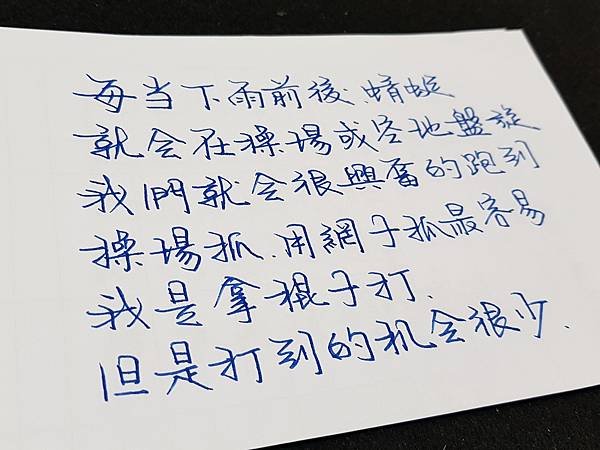 每当下雨前後.蜻蜓
就会在操場或空地盤旋
我們就会很興奮的跑到
操場抓.用網子抓最容易
我是拿棍子打.
但是打到的机会很少.